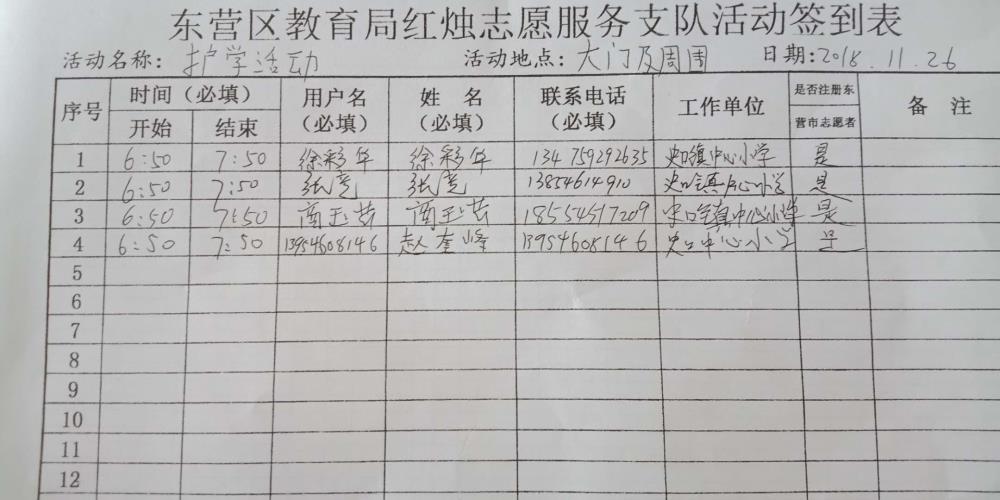 东营区教育局红烛志愿服务支队活动签到表
活动名称: 护学活动 活动地点: 大门及周围 日期: 2018.11.26
序号 时间（必填） 用户名（必填） 姓名（必填） 联系电话（必填） 工作单位 是否注册东营市志愿者 备注
开始 结束
1 6:50 7:50 徐彩华 徐彩华 134759292635 史口镇中心小学 是
2 6:50 7:50 张亮 张亮 13854614910 史口镇中心小学 是
3 6:50 7:50 商玉芸 商玉芸 18554517209 史口镇中心小学 是
4 6:50 7:50 13954608146 赵奎峰 13954608146 史口中心小学 是
5
6
7
8
9
10
11
12